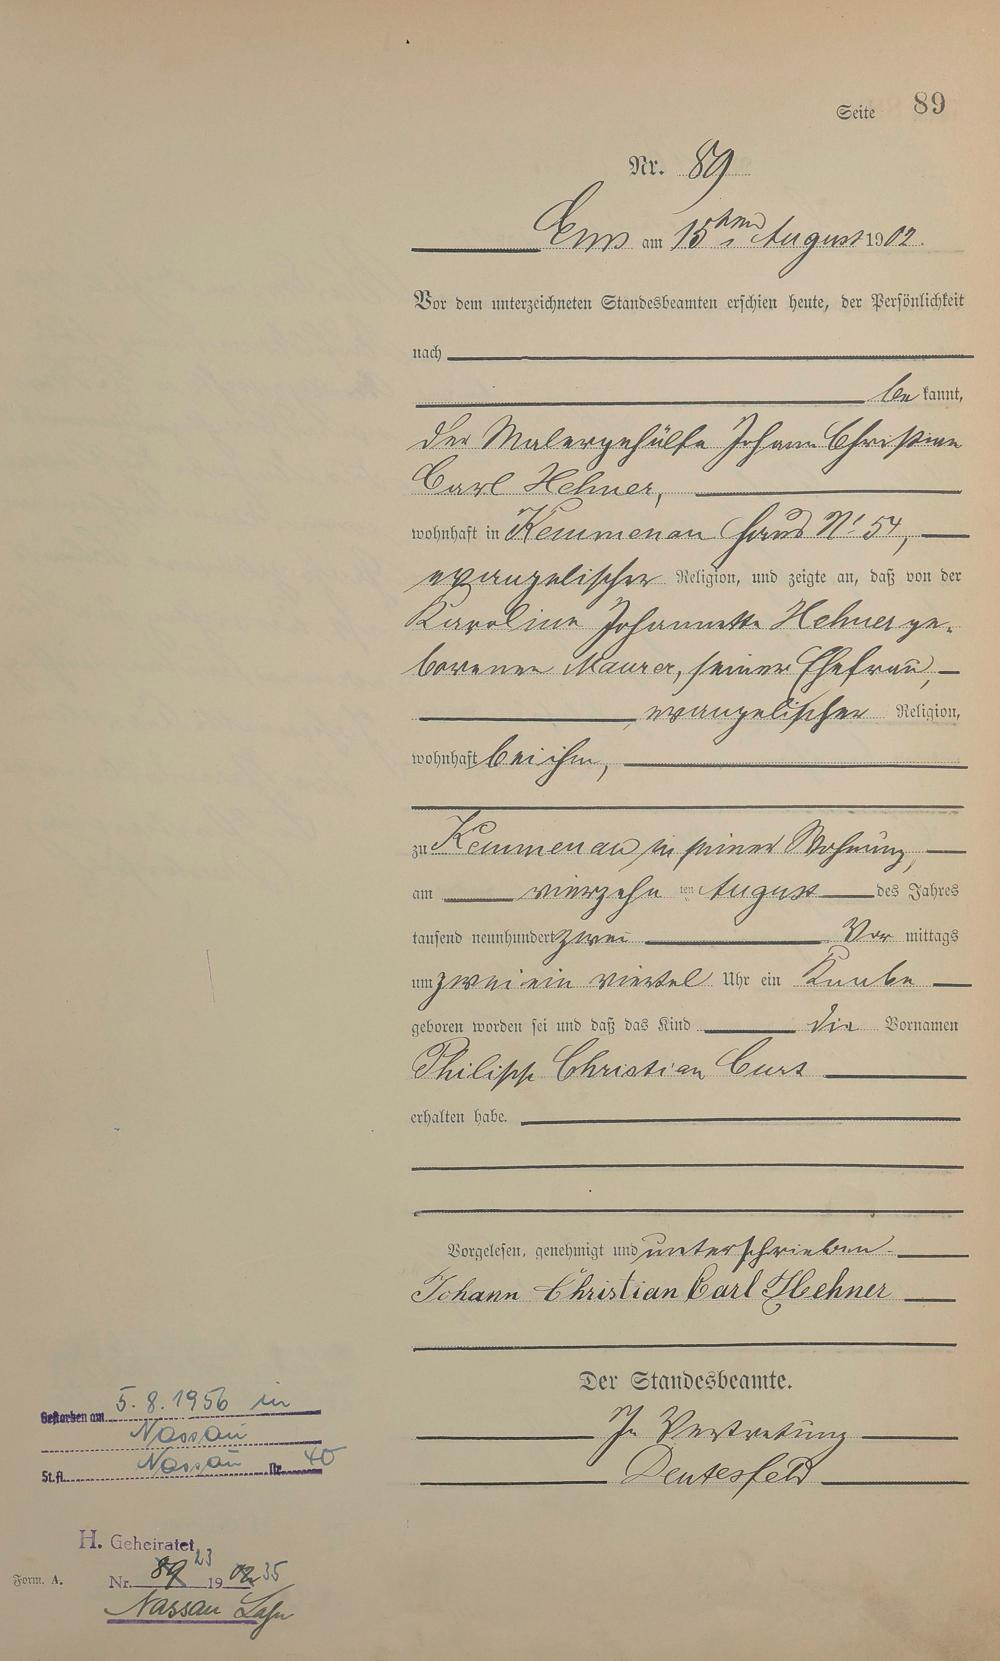 Seite 89
Nr. 89
Ems am 15ten August 1902.
Vor dem unterzeichneten Standesbeamten erschien heute, der Persönlichkeit
nach
be kannt,
der Malergehülfe Johann Christian
Carl Hehner,
wohnhaft in Kemmenau Haus No 54,
evangelischer Religion, und zeigte an, daß von der
Karoline Johannette Hehner ge-
borenen Maurer, seiner Ehefrau,
evangelischer Religion,
wohnhaft bei ihm,
zu Kemmenau in seiner Wohnung,
am vierzehn ten August des Jahres
tausend neunhundert zwei Vor mittags
um zwei ein viertel Uhr ein Knabe
geboren worden sei und daß das Kind die Vornamen
Philipp Christian Curt
erhalten habe.
Vorgelesen, genehmigt und unterschrieben.
Johann Christian Carl Hehner
Der Standesbeamte.
In Vertretung
Deutesfeld
Gestorben am 5.8.1956 in
Nassau
St.A. Nassau Nr. 40
H. Geheiratet
Nr. 89 23 19 02 35
Nassau Lahn
Form. A.